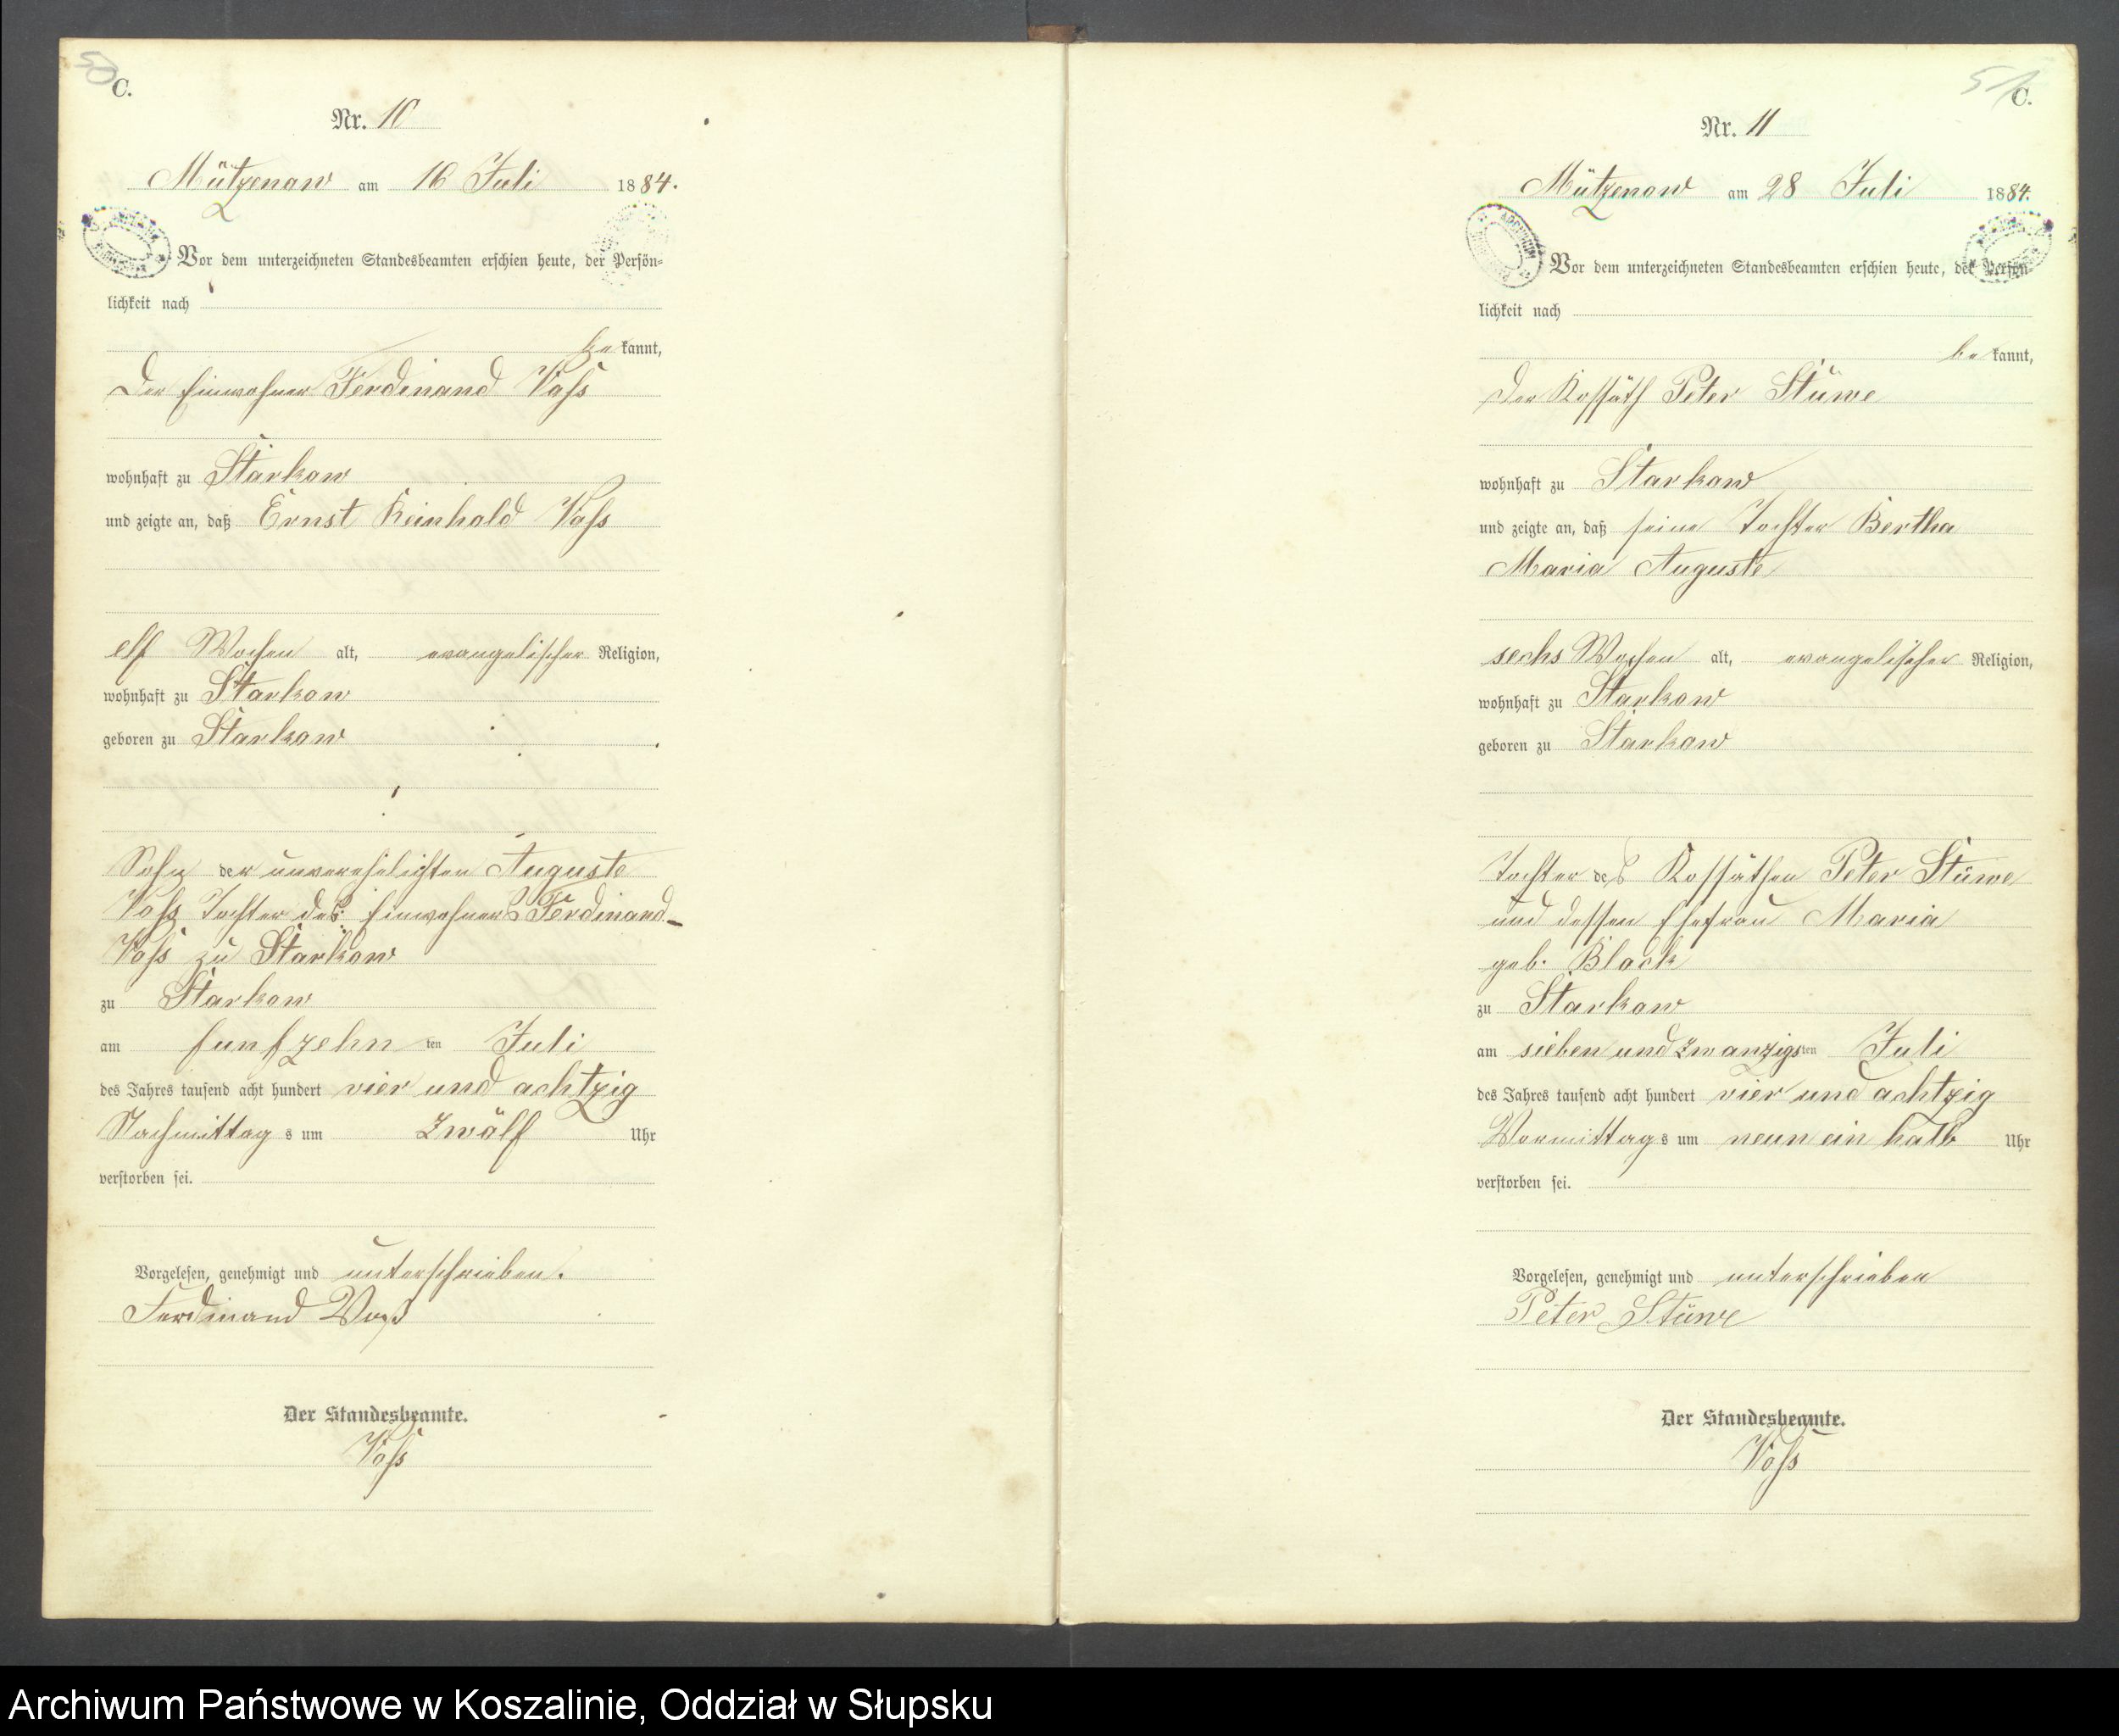 50
C.
Nr. 10
Mützenow am 16 Juli 1884.
Vor dem unterzeichneten Standesbeamten erschien heute, der Persön-
lichkeit nach
bekannt,
Der Einwohner Ferdinand Voss
wohnhaft zu Starkow
und zeigte an, daß Ernst Reinhold Voss
elf Wochen alt, evangelischer Religion,
wohnhaft zu Starkow
geboren zu Starkow
Sohn der unverehelichten Auguste
Voss Tochter des Einwohners Ferdinand
Voss zu Starkow
zu Starkow
am funfzehnten Juli
des Jahres tausend acht hundert vier und achtzig
Nachmittags um Zwölf Uhr
verstorben sei.
Vorgelesen, genehmigt und unterschrieben.
Ferdinand Voß
Der Standesbeamte.
Voss
51
C.
Nr. 11
Mützenow am 28 Juli 1884.
Vor dem unterzeichneten Standesbeamten erschien heute, der Persön-
lichkeit nach
bekannt,
Der Kossäth Peter Stüwe
wohnhaft zu Starkow
und zeigte an, daß seine Tochter Bertha
Maria Auguste
sechs Wochen alt, evangelischer Religion,
wohnhaft zu Starkow
geboren zu Starkow
Tochter des Kossäthen Peter Stüwe
und dessen Ehefrau Maria
geb. Block
zu Starkow
am sieben und zwanzigsten Juli
des Jahres tausend acht hundert vier und achtzig
Vormittags um neun ein halb Uhr
verstorben sei.
Vorgelesen, genehmigt und unterschrieben
Peter Stüwe
Der Standesbeamte.
Voss
Archiwum Państwowe w Koszalinie, Oddział w Słupsku